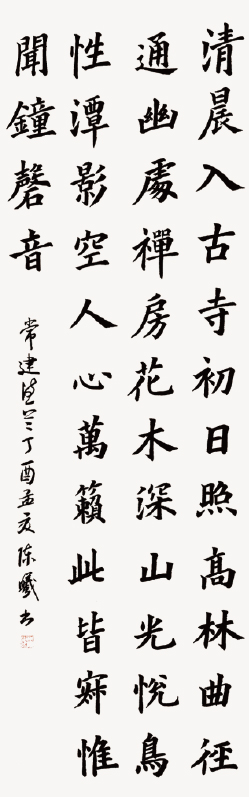 清晨入古寺初日照高林曲徑
通幽處禪房花木深山光悅鳥
性潭影空人心萬籟此皆寂惟
聞鐘磬音
常建詩丁酉孟夏陈曦书